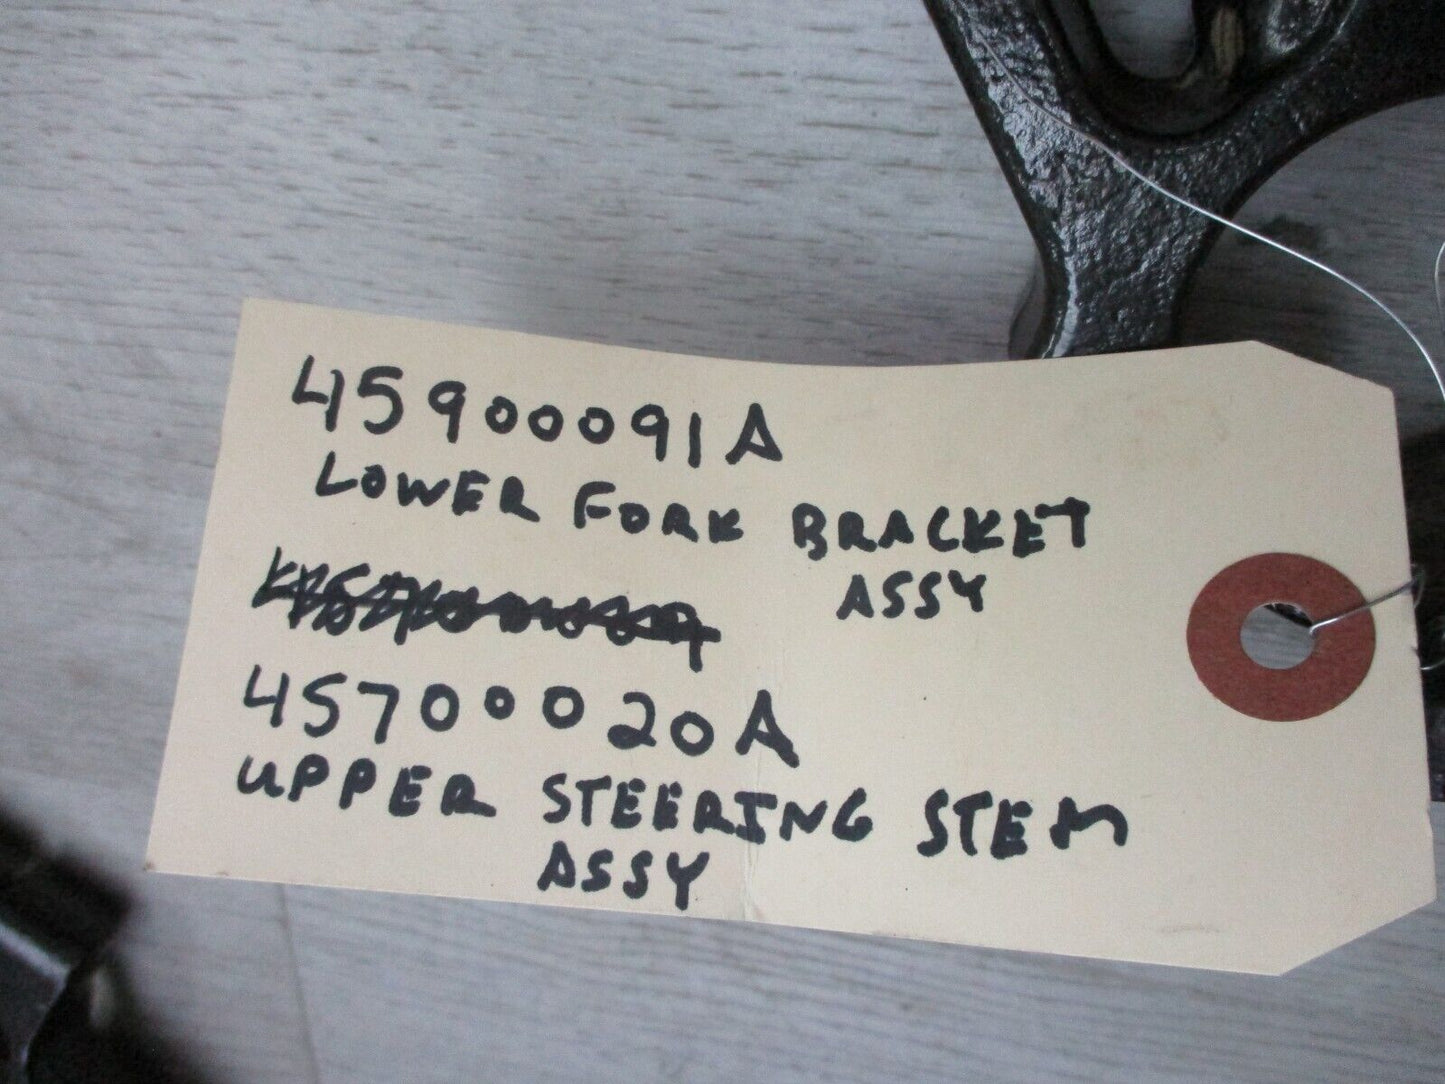 45900091A
LOWER FORK BRACKET
ASSY
45700020A
UPPER STEERING STEM
ASSY